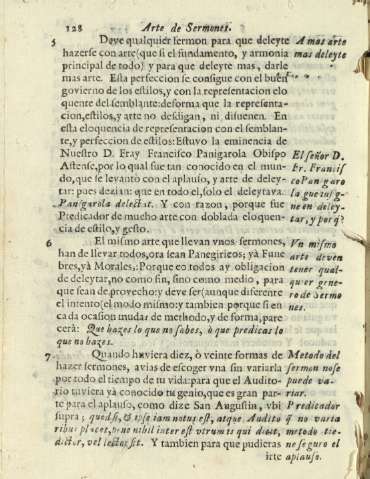 128 Arte de Sermones.
5 Deve qualquier sermon para que deleyte
hazerse con arte (que si el fundamento, y armonia
principal de todo) y para que deleyte mas, darle
mas arte. Esta perfeccion se consigue con el buen
govierno de los estilos, y con la representacion elo
quente del semblante: de forma que la representa-
cion, estilos, y arte no desdigan, ni disuenen. En
esta eloquencia de representacion con el semblan-
te, y perfeccion de estilos: Estuvo la eminencia de
Nuestro D. Fray Francisco Panigarola Obispo
Astense, por lo qual fue tan conocido en el mun-
do, que se levantò con el aplauso, y arte de deley-
tar: pues dezian: que en todo el, solo el deleytava.
Panigarola delectat. Y con razon, porque fue
Predicador de mucho arte con doblada eloquen-
cia de estilo, y gesto.
6 El mismo arte que llevan vnos sermones,
han de llevar todos, ora sean Panegiricos; yà Fune
bres, yà Morales,: Porque en todos ay obligacion
de deleytar, no como fin, sino como medio, para
que sean de provecho: y deve ser (aunque diferente
el intento) el modo mismo: y tambien porque si en
cada ocasion mudas de methodo, y de forma, pare
cerà: Que hazes lo que no sabes, ò que predicas lo
que no hazes.
7 Quando huviera diez, ò veinte formas de
hazer sermones, avias de escoger vna sin variarla
por todo el tiempo de tu vida: para que el Audito-
rio tuviera yà conocido tu genio, que es gran par-
te para el aplauso, como dize San Augustin, vbi
supra; quod si, & ipse iam notus est, atque Audito
ribus placet, nihil interest vtrum is qui dicit,
dictor, vel lector sit. Y tambien para que pudieras
irte
A mas arte
mas deleyte
El señor D.
Fr. Francis
co Panigaro
la que insig-
ne en deley-
tar, y porq?
Vn mismo
arte deven
tener qual-
quier gene-
ro de Sermo
nes.
Metodo del
sermon no se
puede va-
riar.
Predicador
q̃ no varia
metodo tie-
ne seguro el
aplauso.